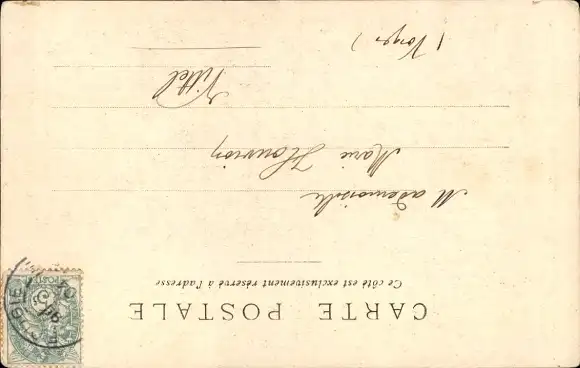 CARTE POSTALE
Ce côté est exclusivement réservé à l'adresse
Mademoiselle
Marie Houvion
Vittel
(Vosges)